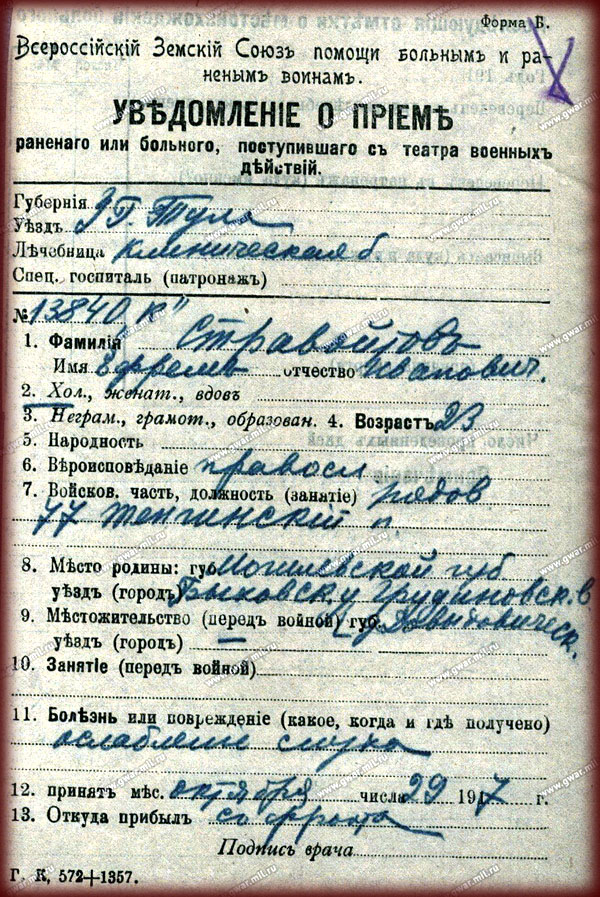 Форма Б.
Всероссійскій Земскій Союзъ помощи больнымъ и ра-
ненымъ воинамъ.
УВѢДОМЛЕНІЕ О ПРІЕМѢ
раненаго или больного, поступившаго съ театра военныхъ
дѣйствій.
Губернія
Уѣздъ г. Тула
Лѣчебница клиническая б
Спец. госпиталь (патронажъ)
№ 13840 к"
1. Фамилія Стравойтовъ
Имя Ефремъ отчество Иванович.
2. Хол., женат., вдовъ
3. Неграм., грамот., образован. 4. Возрастъ 23
5. Народность
6. Вѣроисповѣданіе правосл
7. Войсков. часть, должность (занятіе) рядов
77 Тенгинскій п.
8. Мѣсто родины: губ. Могилевской губ
уѣздъ (городъ) Быховск. у Грудиновск. в
9. Мѣстожительство (передъ войной) губ.
уѣздъ (городъ) —
10. Занятіе (передъ войной)
11. Болѣзнь или поврежденіе (какое, когда и гдѣ получено)
ослабление слуха
12. принятъ мѣс. октября числа 29 1917 г.
13. Откуда прибылъ со фронта
Подпись врача
Г. К, 572+1357.
www.gwar.mil.ru